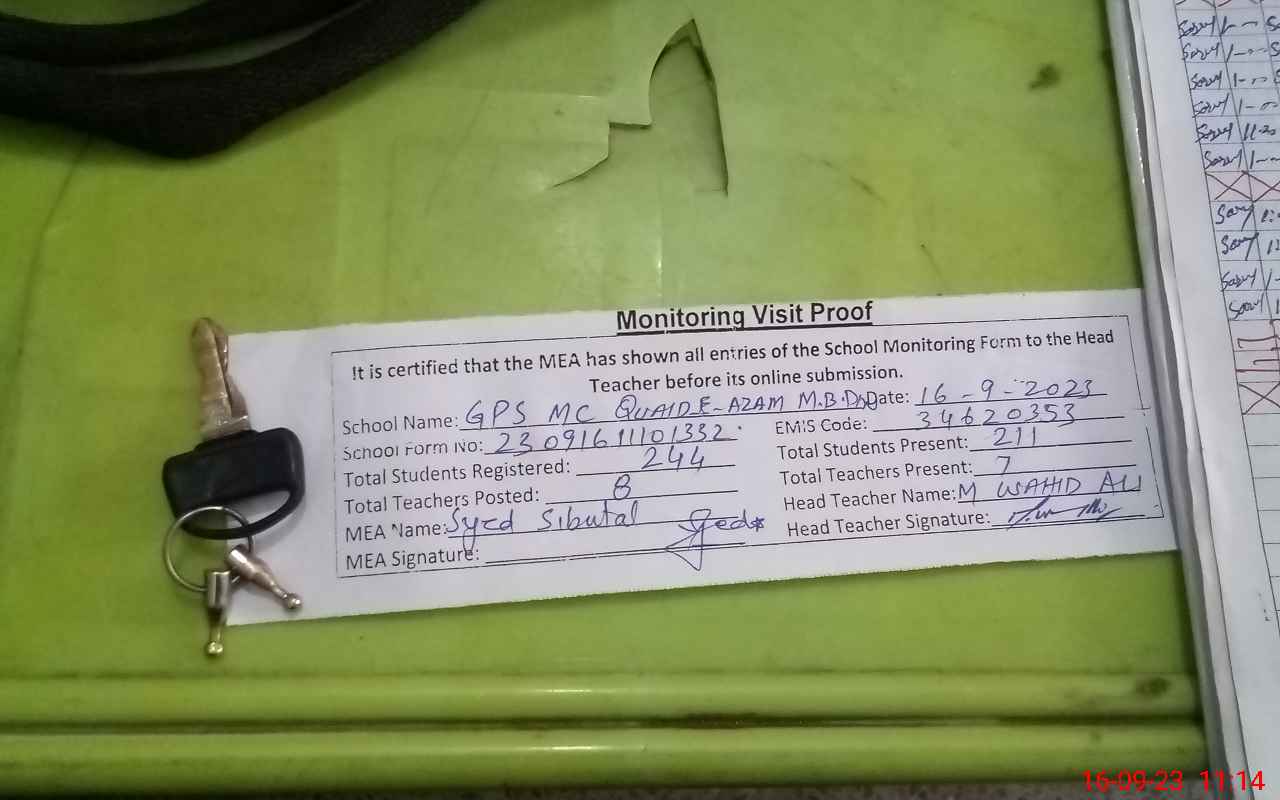 Monitoring Visit Proof
It is certified that the MEA has shown all entries of the School Monitoring Form to the Head
Teacher before its online submission.
School Name: GPS MC QUAID-E-AZAM M.B.Din Date: 16-9-2023
School Form No: 23091611101332 EMIS Code: 34620353
Total Students Registered: 244 Total Students Present: 211
Total Teachers Posted: 8 Total Teachers Present: 7
MEA Name: Syed Sibutal Head Teacher Name: M WAHID ALI
MEA Signature: Head Teacher Signature:
16-09-23 11:14